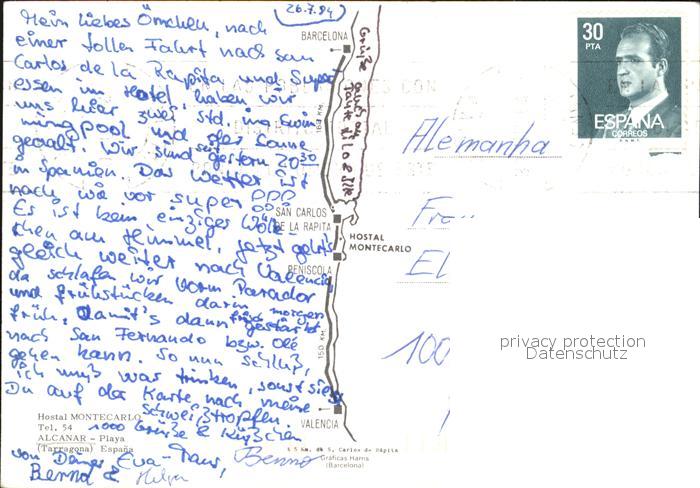 26.7.84
Mein liebes Ömchen, nach
einer tollen Fahrt nach San
Carlos de la Rapita und Super
essen im Hotel, haben wir
uns hier zwei Std. ins Swim
mingpool und der Sonne
geaalt. Wir sind seit gestern 20³⁰
in Spanien. Das Wetter ist
nach wie vor super
Es ist kein einziges Wölk-
chen am Himmel, jetzt geht's
gleich weiter nach Valencia,
da schlafen wir vorm Parador
und frühstücken darin morgen
früh, damit's dann frisch gestärkt
nach San Fernando bzw. Olé
gehen kann. So nun schluß,
ich muß was trinken, sonst siehst
Du auf der Karte noch meine
Schweißtropfen.
1000 Grüße & Küßchen
von Deiner Eva-
Bernd & Helga
Benno
Grüße
BARCELONA
184 KM.
SAN CARLOS
DE LA RAPITA
HOSTAL
MONTECARLO
PEÑISCOLA
150 KM.
VALENCIA
Hostal MONTECARLO
Tel. 54
ALCANAR - Playa
(Tarragona) España
a 5 Km. de S. Carlos de Rápita
Gráficas Hams
(Barcelona)
30
PTA
ESPAÑA
CORREOS
Alemanha
El
100
privacy protection
Datenschutz